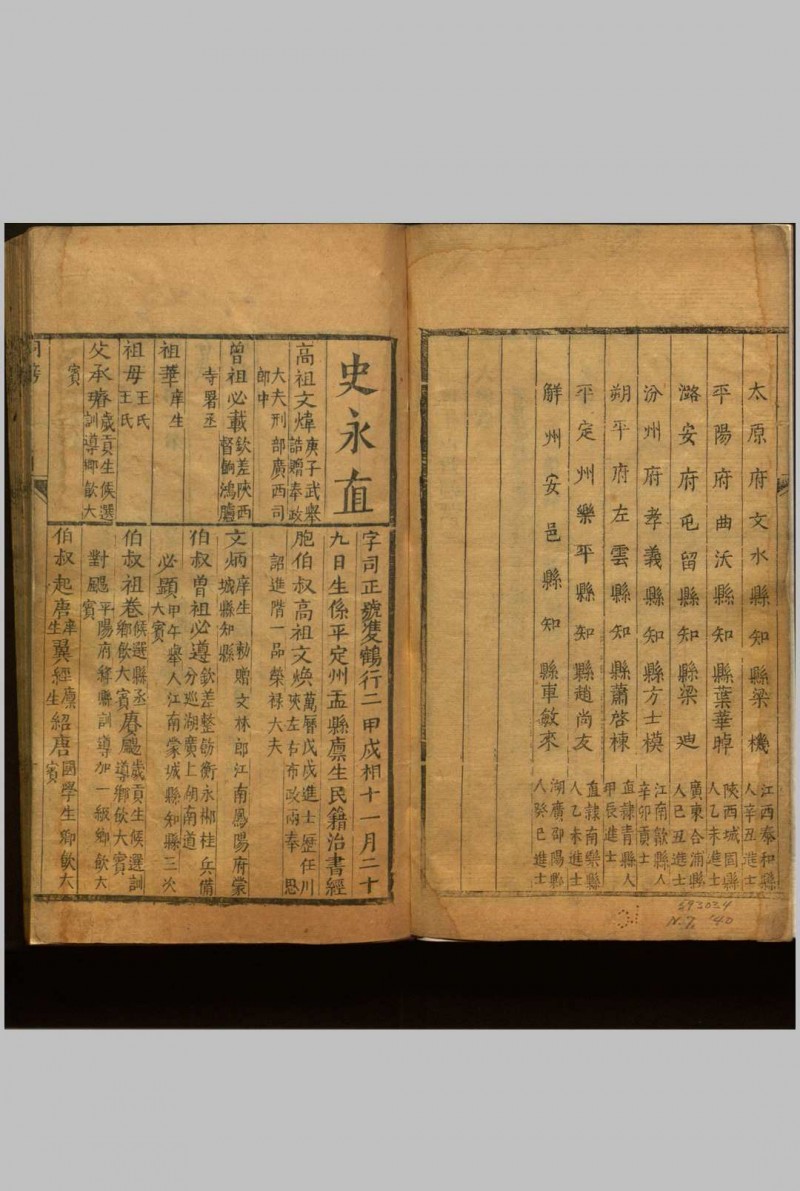 太原府文水縣知縣梁機 江西泰和縣人辛丑進士
平陽府曲沃縣知縣葉華晫 陝西城固縣人乙未進士
潞安府屯留縣知縣梁迪 廣東合浦縣人己丑進士
汾州府孝義縣知縣方士模 江南歙縣人辛卯貢士
朔平府左雲縣知縣蕭啓棟 直隸青縣人甲辰進士
平定州樂平縣知縣趙尚友 直隸南樂縣人乙未進士
解州安邑縣知縣車敏來 湖廣邵陽縣人癸巳進士
593034
N.7, '40
史永直
高祖文煒 庚子武舉誥贈奉政
大夫刑部廣西司郎中
曾祖必載 欽差陝西督餉鴻臚
寺署丞
祖華 庠生
祖母 王氏王氏
父承㻞 歲貢生候選訓導鄉飲大
賓
字司正號雙鶴行二甲戌相十一月二十
九日生係平定州盂縣廪生民籍治書經
胞伯叔高祖文煥 萬曆戊戌進士歷任川陝左右布政兩奉 恩
詔進階一品榮祿大夫
文炳 庠生 勑贈文林郎江南鳳陽府蒙城縣知縣
伯叔曾祖必遵 欽差整飭衡永郴桂兵備分巡湖廣上湖南道
必顯 甲午舉人江南蒙城縣知縣三次大賓
伯叔祖卷 候選縣丞鄉飲大賓 賡颺 歲貢生候選訓導鄉飲大賓
對颺 平陽府 縣訓導加一級鄉飲大賓
伯叔起唐 庠生 翼經 廪生 紹唐 國學生鄉飲大賓